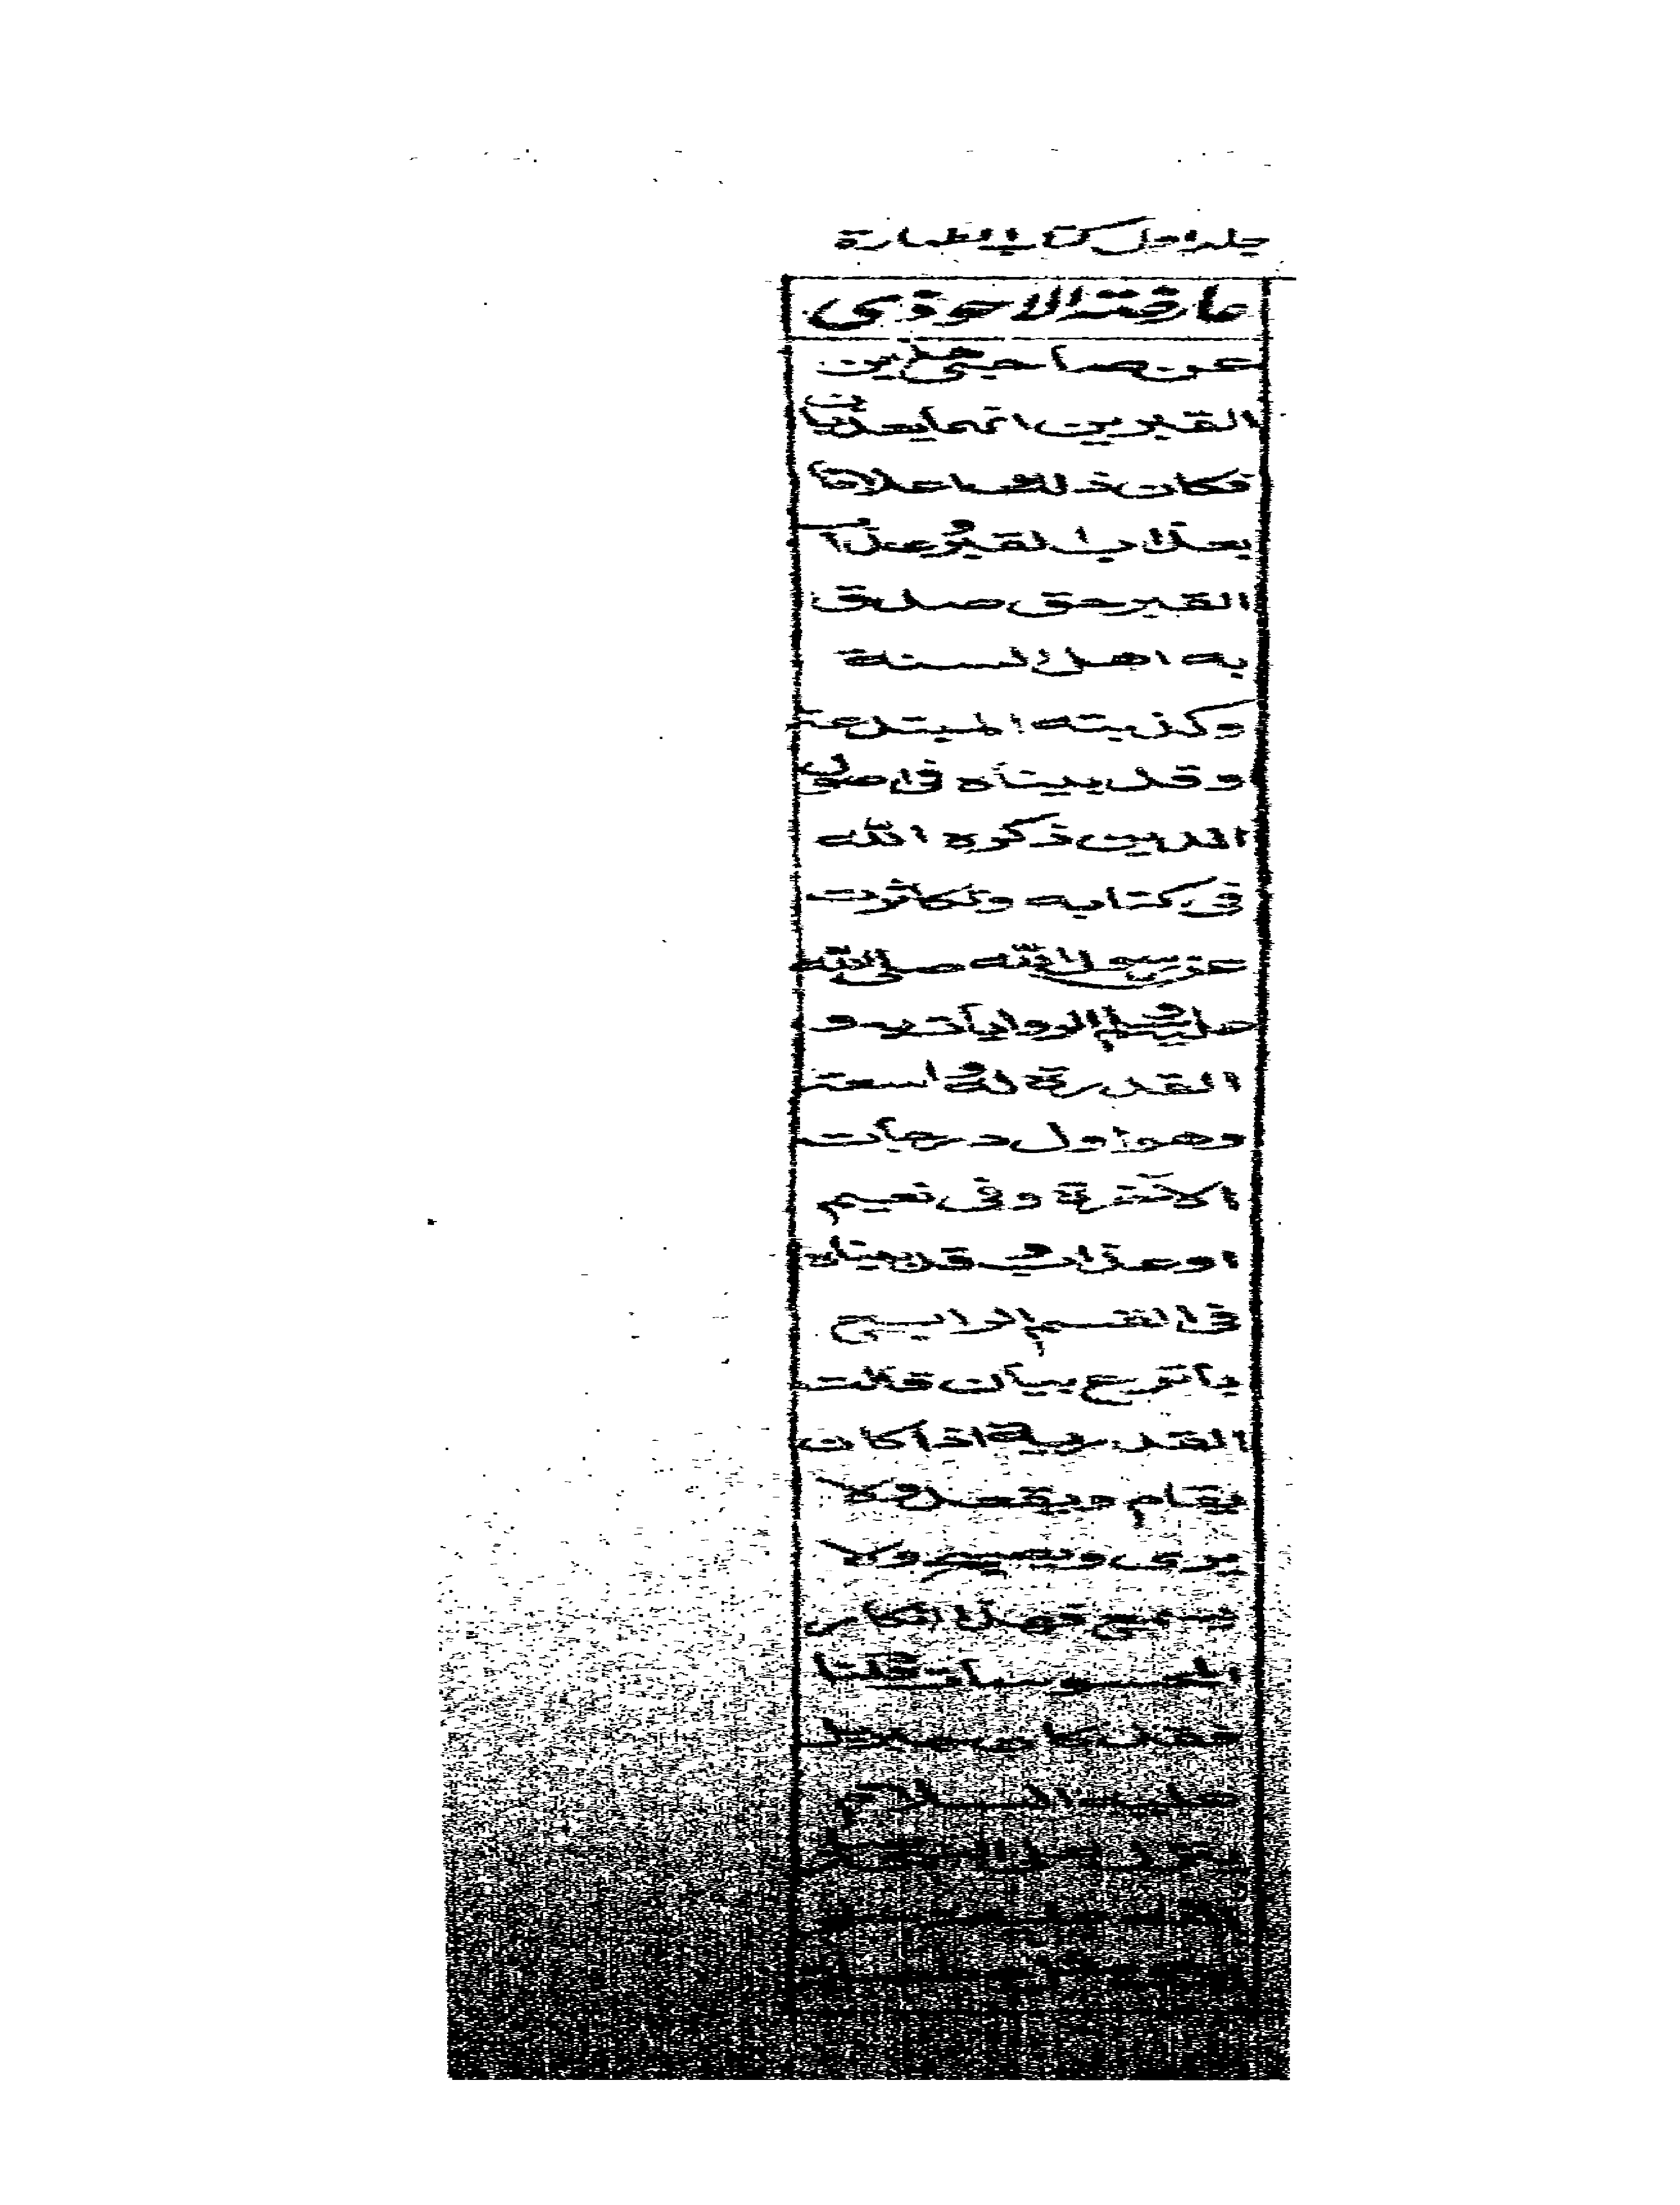 جلد اول كتاب الطهارة
عارضة الاحوذى
عن صاحبى هذين
القبرين انهما يعذبان
فكان ذلك اعلاما
بعذاب القبر وعذاب
القبر حق صدق
به اهل السنة
وكذبته المبتدعة
وقد بيناه فى اصول
الدين ذكره الله
فى كتابه وتكاثرت
عن رسول الله صلى الله
عليه وسلم الروايات به و
القدرة له واسعة
وهو اول درجات
الآخرة وفى نعيم
او عذاب وقد بيناه
فى القسم الرابع
بابرع بيان قالت
القدرية اذا كان
يقام ويقعد ولا
يرى ويصيح ولا
يسمع فهذا انكار
المحسوسات قلنا
فقد كان جبريل
عليه السلام